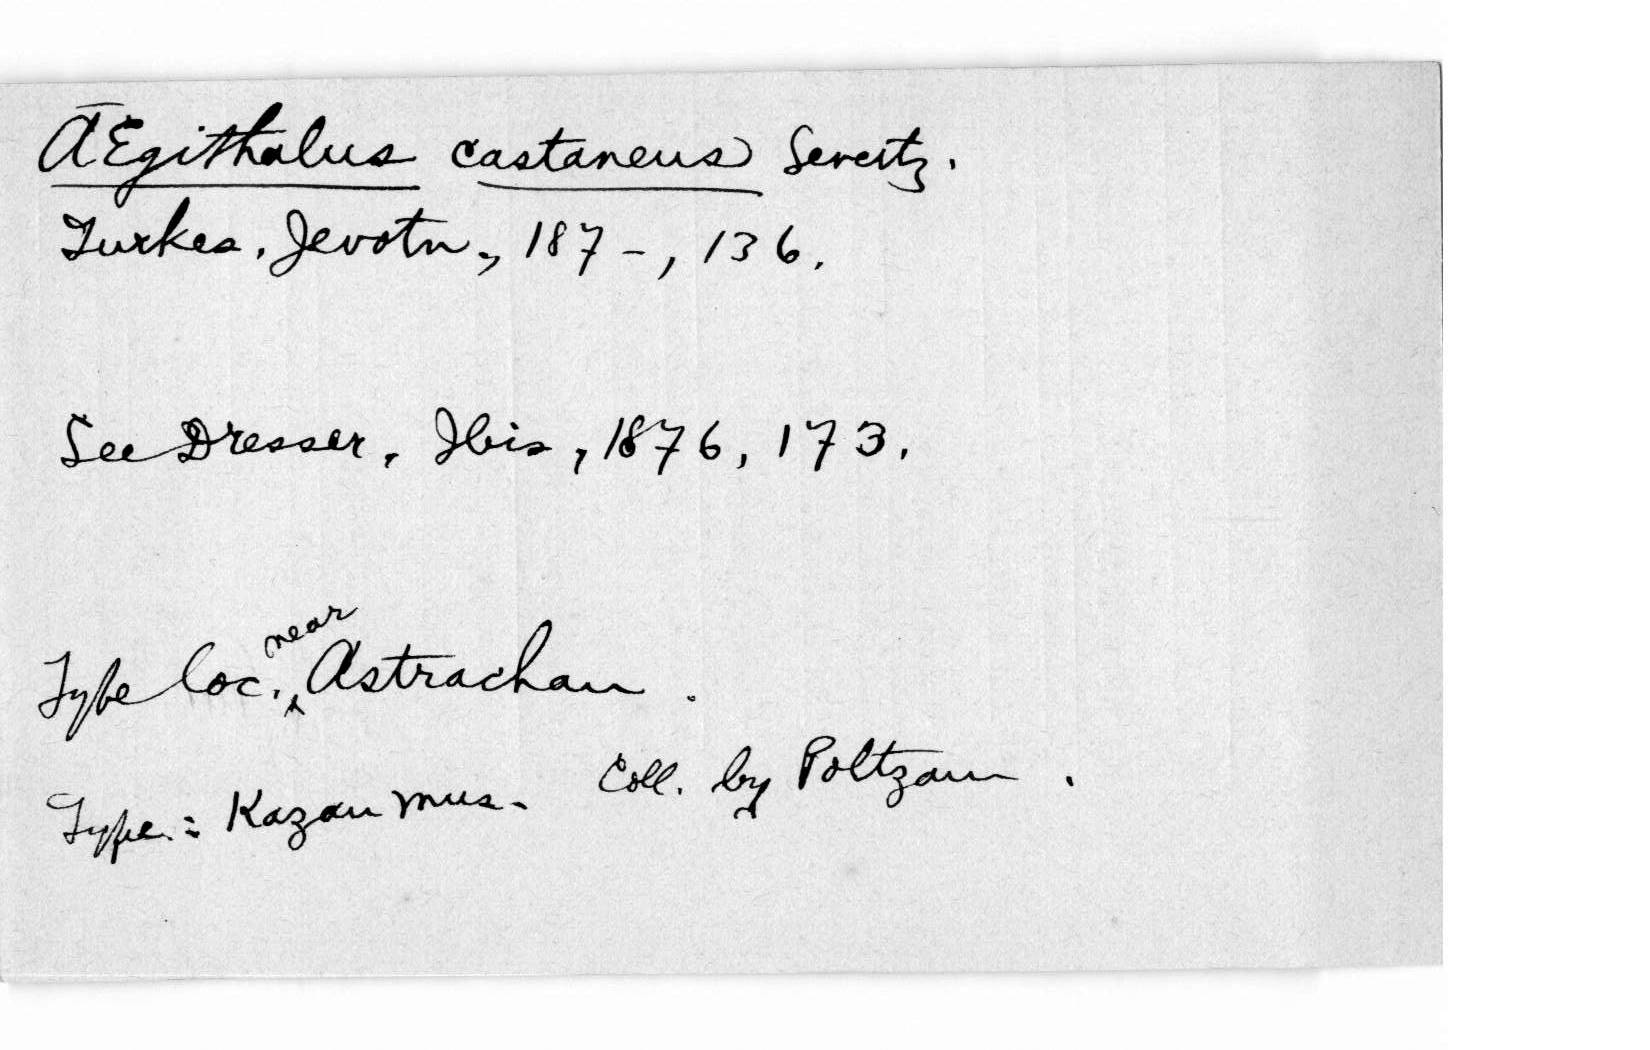 Ægithalus castaneus Severtz.
Turkes. Jevotn., 187-, 136.
See Dresser, Ibis, 1876, 173.
Type loc. near Astrachan.
Type: Kazan Mus. Coll. by Poltzam.